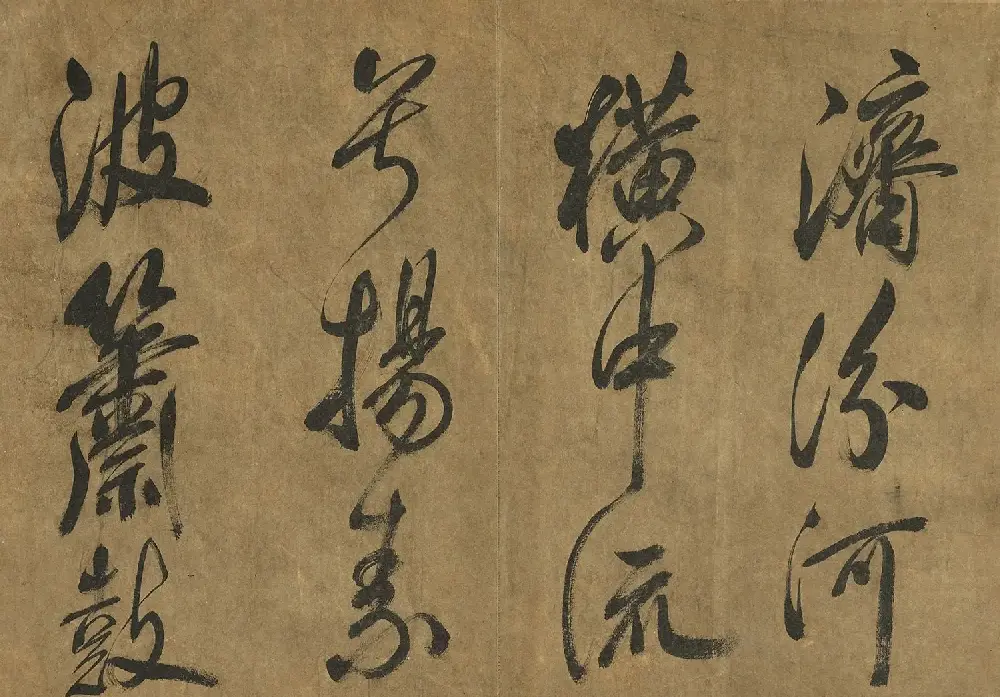 濟汾河
橫中流
兮揚素
波簫鼓